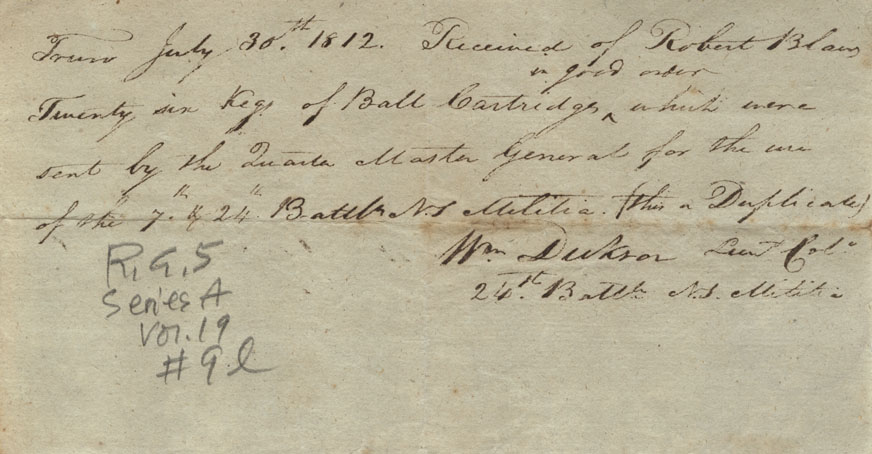 Truro July 30th. 1812. Received of Robert Blair
in good order
Twenty six Kegs of Ball Cartridges ‸ which were
sent by the Quarter Master General for the use
of the 7th. & 24th. Battln N.S. Militia. (this a Duplicate)
Wm Dickson Leut Colo
24th. Battln N.S. Militia
R.G.5
Series A
Vol. 19
# 9 l